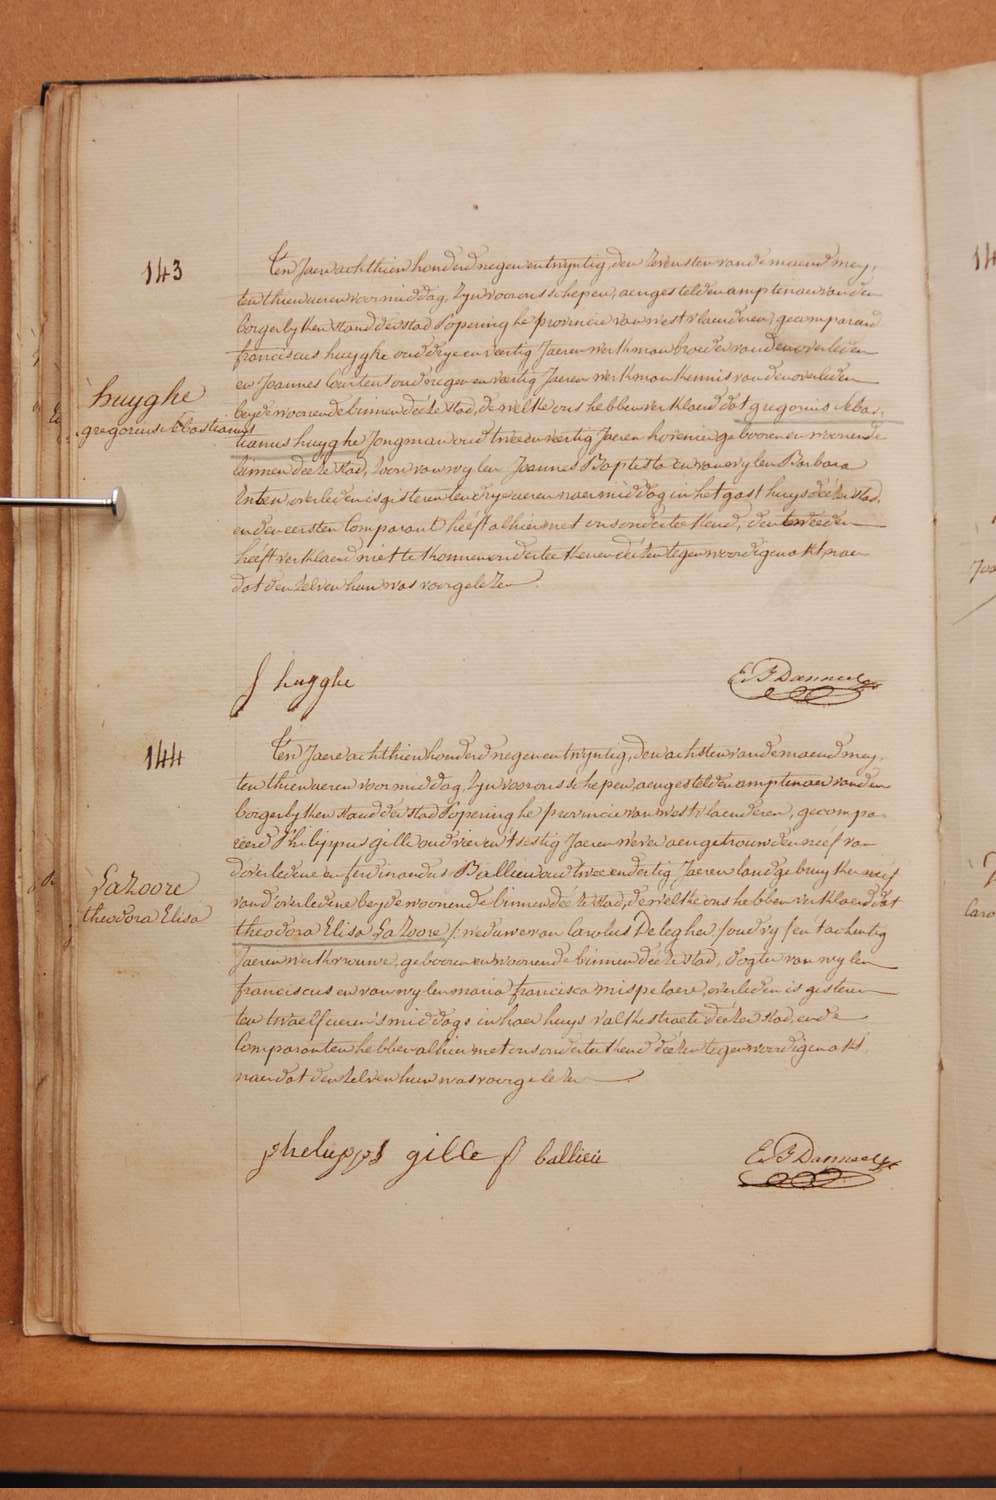 143
Ten Jaere achthien honderd negen en twyntig, den zevensten van de maend mey,
ten thien ueren voormiddag, zyn voor ons schepen, aengestelden amptenaer van den
borgerlyken stand der stad Poperinghe provincie van westvlaenderen, gecompareerd
franciscus huyghe oud dry en veertig Jaeren werkman broeder van den overleden
en Joannes Coutens oud negen en veertig Jaeren werkman kennis van den overleden
beyde woonende binnen deéze stad, de welke ons hebben verklaerd dat gregorius sebas-
tianus huyghe Jongman oud twee en veertig Jaeren hovenier gebooren en woonende
binnen deéze stad, zoon van wylen Joannes Baptista en van wylen Barbara
overleden is gisteren ten dry ueren naermiddag in het gasthuys deézer stad.
en den eersten Comparant heeft alhier met ons onderteekend, den tweeden
heeft verklaerd niet te konnen onderteekenen deézen tegenwoordigen akt naer
dat den zelven hun was voorgelezen.
huyghe
gregorius sebastianus
f huyghe
144
Ten Jaere achthien honderd negen en twyntig, den achsten van de maend mey,
ten thien ueren voormiddag, zyn voor ons schepen, aengestelden amptenaer van den
borgerlyken stand der stad Poperinghe provincie van westvlaenderen, gecompa-
reerd Philippus gille oud vier en t'sestig Jaeren wever aengetrouwden neéf van
d'overledene en ferdinandus Ballieu oud twee en dertig Jaeren landgebruyker neéf
van d'overledene beyde woonende binnen deéze stad, de welke ons hebben verklaerd dat
theodora Elisa Lazoore / weduwe van Carolus De legher / oud vyf en tachentig
Jaeren werkvrouwe, gebooren en woonende binnen deéze stad, dogter van wylen
franciscus en van wylen maria francisca mispelaere, overleden is gisteren
ten twaelf ueren 's middags in haer huys valkestraete deézer stad, en de
Comparanten hebben alhier met ons onderteekend deézen tegenwoordigen akt,
naer dat den zelven hun was voorgelezen.
Lazoore
theodora Elisa
phelupps gille f ballieu